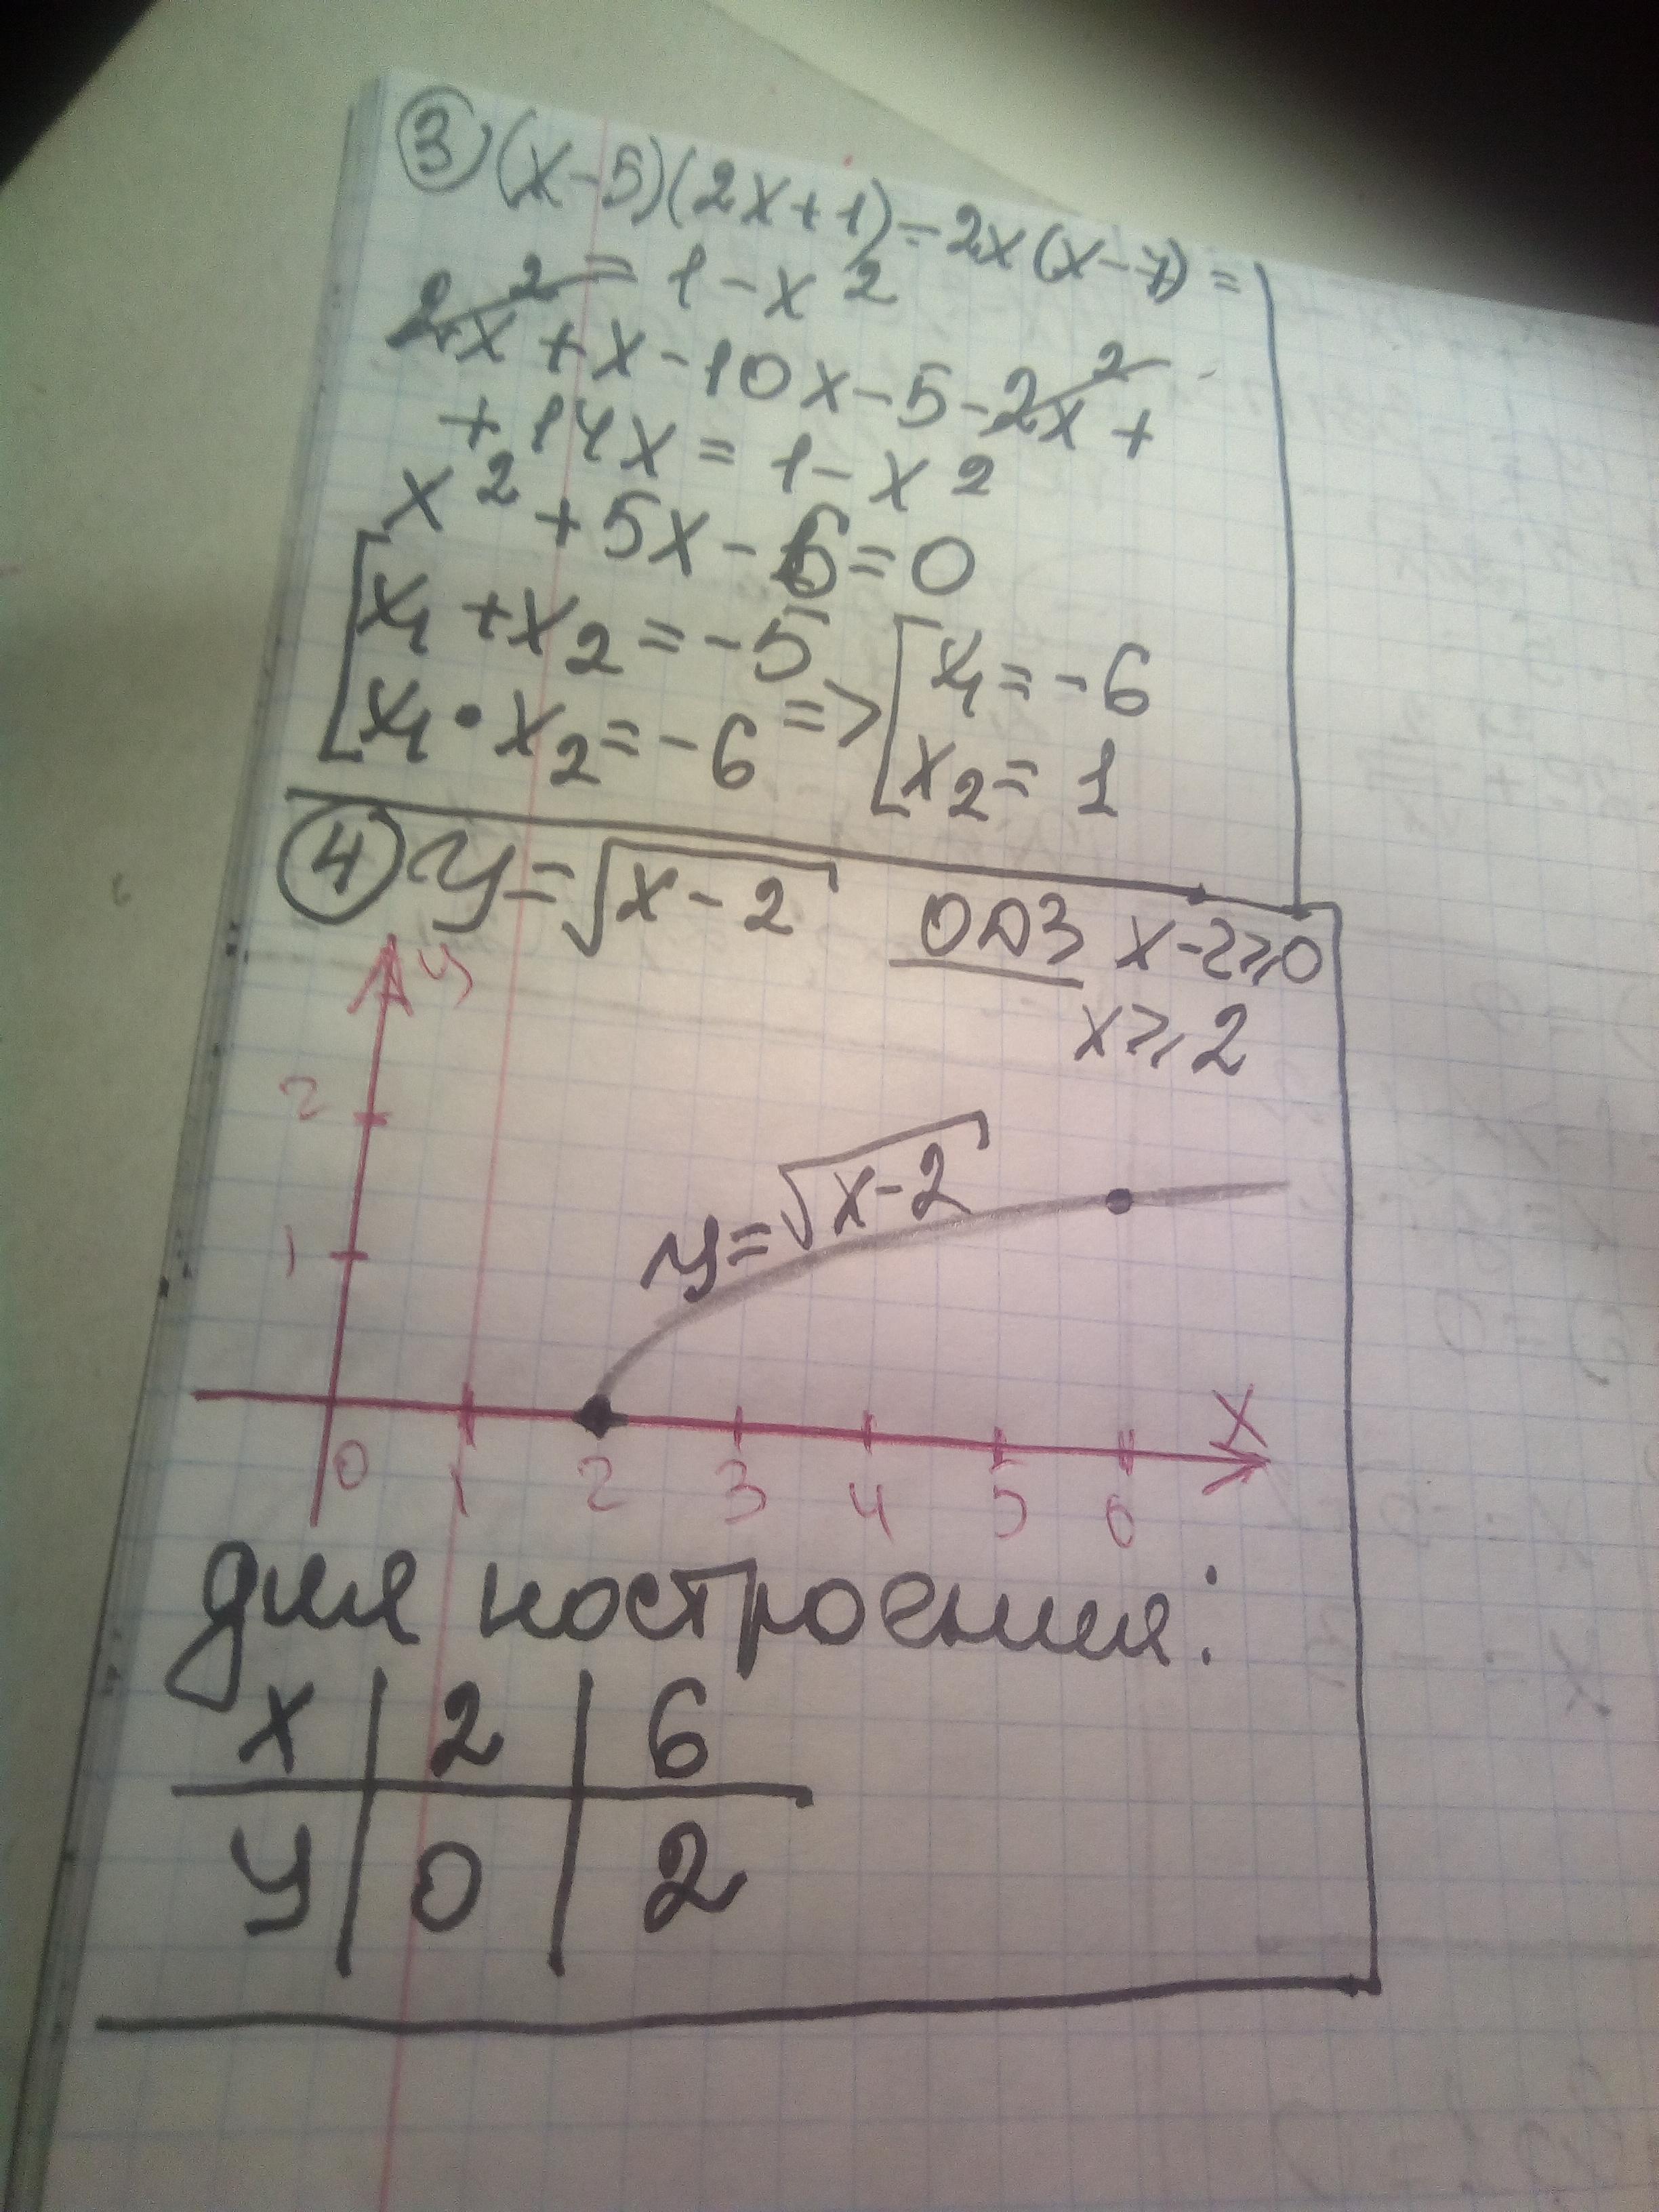 ③ (x-5)(2x+1)-2x(x-7) =
= 1-x²
2x²+x-10x-5-2x²+
+14x = 1-x²
x²+5x-6=0
[x₁+x₂=-5
[x₁·x₂=-6 => [x₁=-6
[x₂=1
④ y=√x-2 ОДЗ x-2≥0
x≥2
y
2
y=√x-2
1
x
0 1 2 3 4 5 6
для построения:
x | 2 | 6
y | 0 | 2